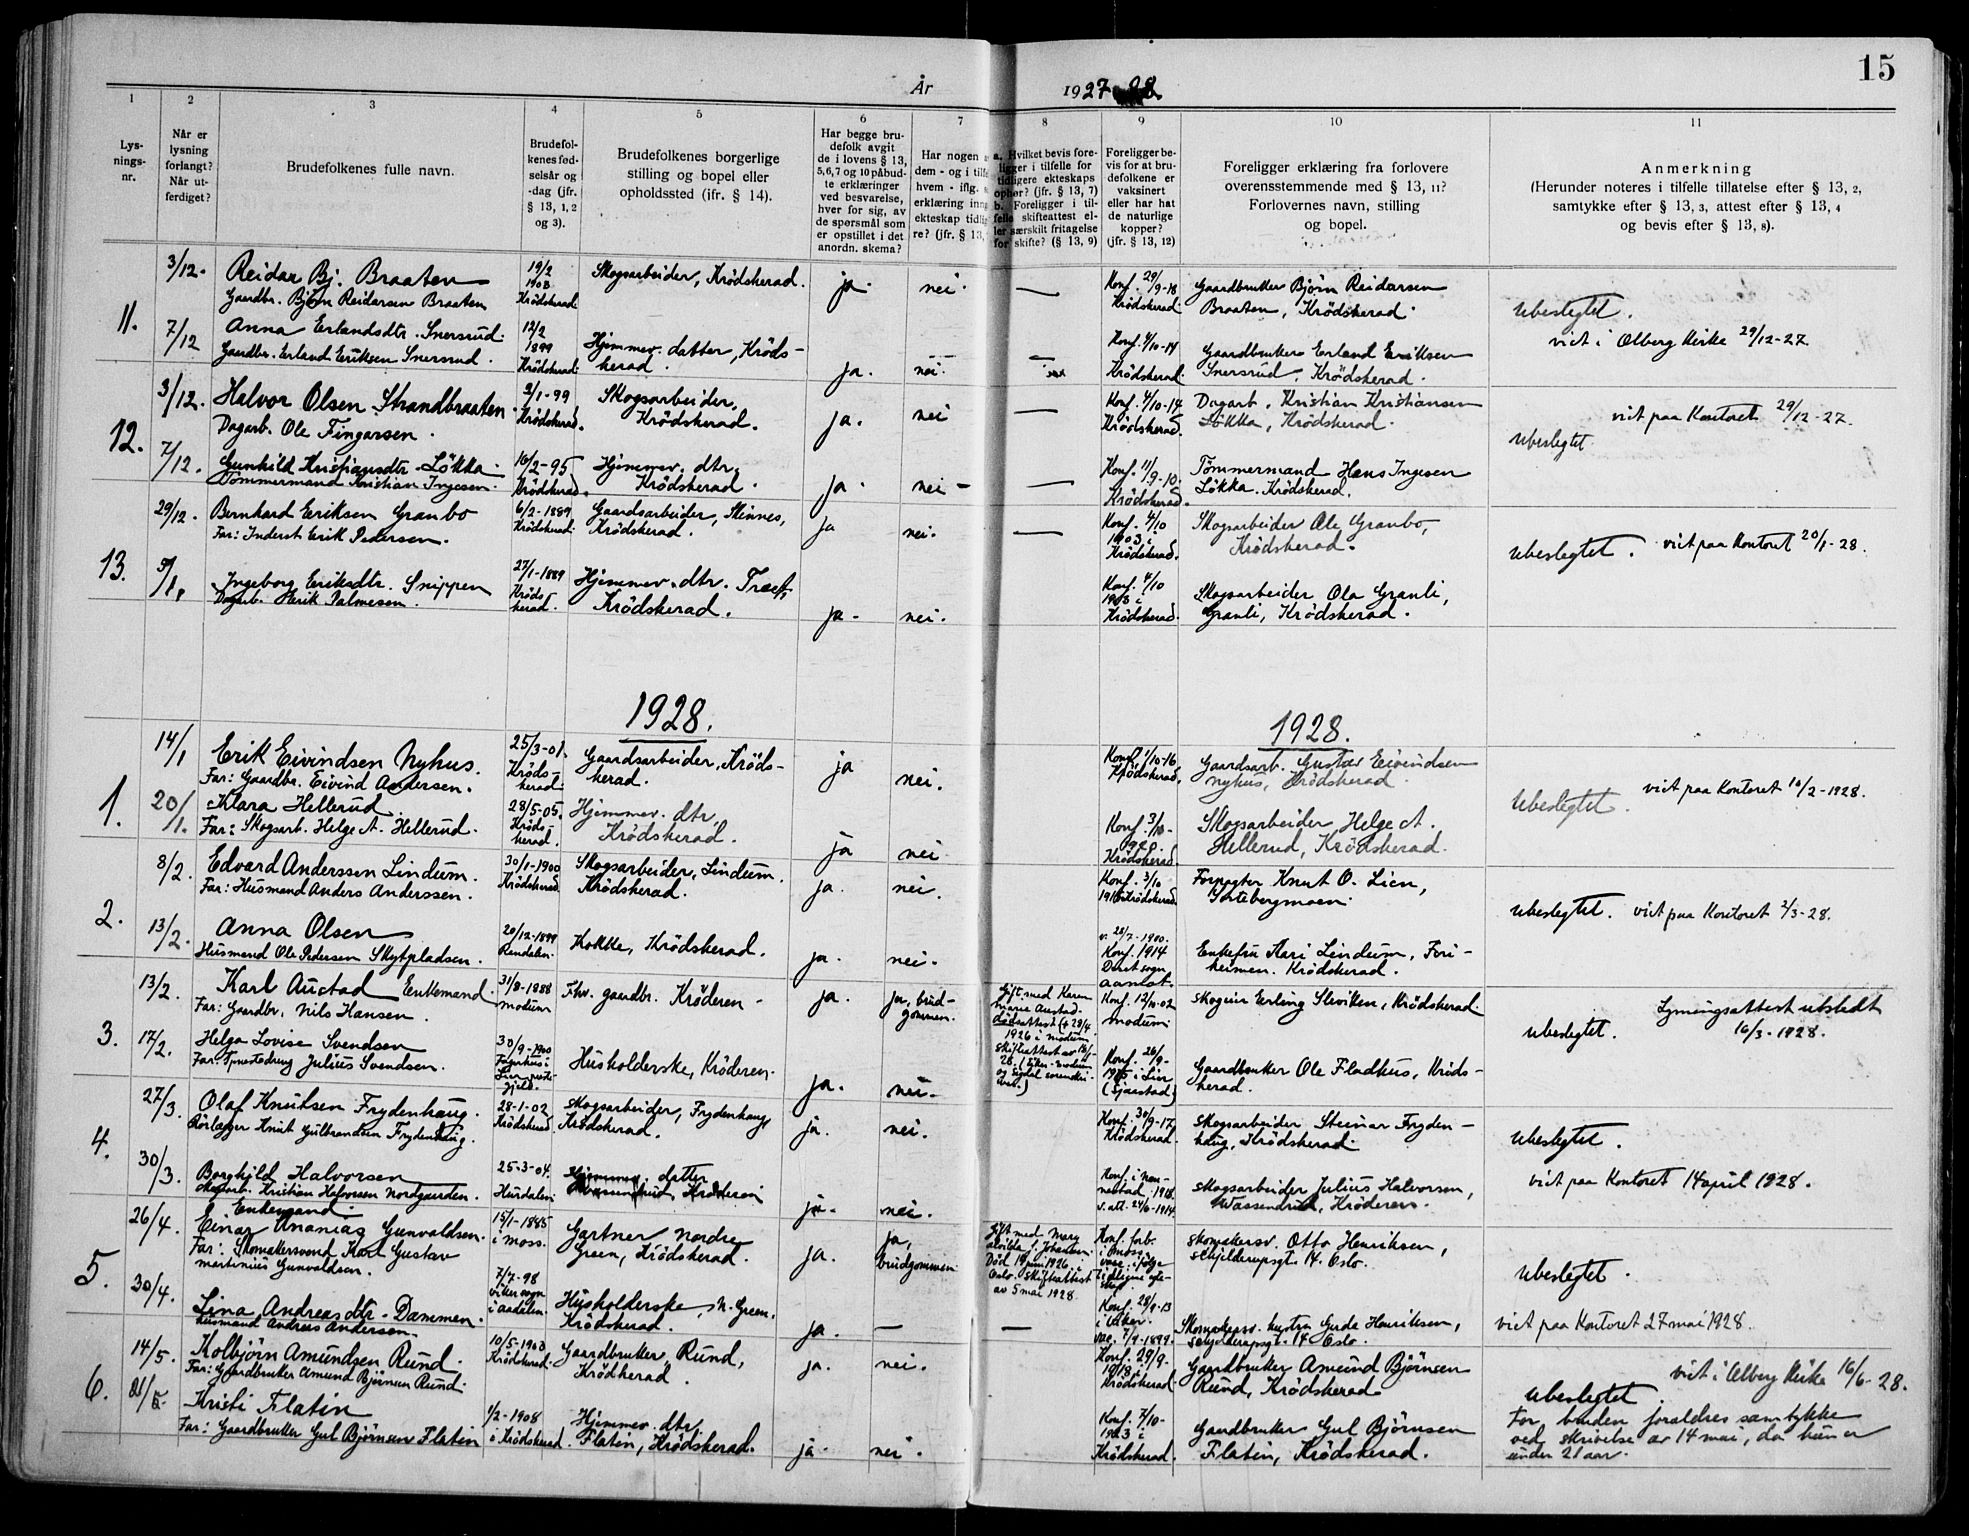 15
År 1927-28
1 2 3 4 5 6 7 8 9 10 11
Lys-
nings-
nr.
Når er
lysning
forlangt?
Når ut-
ferdiget?
Brudefolkenes fulle navn.
Brudefol-
kenes fød-
selsår og
-dag (jfr.
§ 13, 1, 2
og 3).
Brudefolkenes borgerlige
stilling og bopel eller
opholdssted (ifr. § 14).
Har begge bru-
defolk avgit
de i lovens § 13,
5, 6, 7 og 10 påbud-
te erklæringer
ved besvarelse,
hver for sig, av
de spørsmål som
er opstillet i det
anordn. skema?
Har nogen
dem - og i tilfe
hvem - iflg.
erklæring inng
ekteskap tidli
re? (jfr. § 13,
a. Hvilket bevis fore-
ligger i tilfelle for
tidligere ekteskaps
ophør? (jfr. § 13, 7)
b. Foreligger i til-
felle skifteattest el-
ler særskilt fritagelse
for skifte? (§ 13, 9)
Foreligger be-
vis for at bru-
defolkene er
vaksinert
eller har hat
de naturlige
kopper?
(jfr. § 13, 12)
Foreligger erklæring fra forlovere
overensstemmende med § 13, 11?
Forlovernes navn, stilling
og bopel.
Anmerkning
(Herunder noteres i tilfelle tillatelse efter § 13, 2,
samtykke efter § 13, 3, attest efter § 13, 4
og bevis efter § 13, 8).
11.
3/12. Reidar Bj. Braaten
Gaardbr. Björn Reidarsen Braaten
19/2
1903
Krödsherad
Skogsarbeider, Krödsherad.
ja. nei. —
Konf. 29/9-18
Krödsherad.
Gaardbruker Björn Reidarsen
Braaten, Krödsherad.
Ubeslegtet.
viet i Olberg Kirke 29/12-27
7/12 Anna Erlandsdtr. Snersrud.
Gaardbr. Erland Eriksen Snersrud.
12/2
1899
Krödsherad.
Hjemmev. datter, Kröds-
herad.
ja. nei. —
Konf. 4/10-14
Krödsherad.
Gaardbruker Erland Eriksen
Snersrud, Krödsherad.
12.
3/12. Halvor Olsen Strandbraaten
Dagarb. Ole Fingarsen.
2/1-99
Krödsherad.
Skogsarbeider,
Krödsherad.
ja. nei —
Konf. 4/10-14
Krödsherad.
Dagarb. Kristian Kristiansen
Lökka, Krödsherad.
viet paa Kontoret 29/12-27.
Ubeslegtet
7/12. Gunhild Kristiansdtr. Lökka.
Tömmermand Kristian Ingesen.
16/2-95
Krödsherad.
Hjemmev. dtr.
Krödsherad.
ja. nei - —
Konf. 11/9-10.
Krödsherad.
Tömmermand Hans Ingesen
Lökka. Krödsherad.
13.
29/12. Bernhard Eriksen Granbo
Far: Inderst Erik Pedersen.
6/2-1889
Krödsherad.
Gaardsarbeider, Skinnes,
Krödsherad.
ja nei. —
Konf. 4/10
1903 i
Krödsherad.
Skogsarbeider Ole Granbo,
Krödsherad.
Ubeslegtet. viet paa Kontoret 20/1-28.
Ingeborg Eriksdtr. Snippen
Dagarb. Erik Palmesen.
27/1-1889
Kröds-
herad.
Hjemmev. dtr.
Krödsherad.
ja. nei.
Konf. 4/10
1903 i
Krödsherad.
Skogsarbeider Ola Granli,
Granli, Krödsherad.
1928.
1928.
1.
14/1 Erik Eivindsen Nyhus.
Far: Gaardbr. Eivind Andersen.
25/3-01.
Kröds-
herad.
Gaardsarbeider, Kröds-
herad.
ja nei.
Konf. 1/10-16
Krödsherad.
Gaardsarb. Gustav Eivindsen
Nyhus, Krödsherad
Ubeslegtet. viet paa Kontoret 10/2-1928.
20/1. Klara Hellerud
Far: Skogsarb. Helge A. Hellerud.
28/5-05.
Kröds-
herad.
Hjemmev. dtr.
Krödsherad.
ja nei
Konf. 3/10-
1920.
Krödsherad
Skogsarbeider Helge A.
Hellerud, Krödsherad.
2.
8/2. Edvard Anderssen Lindum.
Far: Husmand Anders Anderssen.
30/1-1900
Krödsherad.
Skogsarbeider, Lindum.
Krödsherad.
ja. nei.
Konf. 3/10
Krödsherad
Forpagter Knut O. Lien,
Gortebergmoen.
Ubeslegtet. viet paa Kontoret 2/3-28.
13/2. Anna Olsen
Husmand Ole Pedersen Skytpladsen.
20/12-1899
Rendalen.
Kokke, Krödsherad.
ja. nei.
v. 28/7-1900.
Konf. 1914
Enkefru Kari Lindum, Fori-
heimen. Krödsherad.
3.
13/2. Karl Austad Enkemand
Far: Gaardbr. Nils Hansen.
31/8-1888
Modum
Fhv. gaardbr. Kröderen-
ja. ja, brud-
gommen.
Gift med Karen
Marie Austad.
Dödsattest († 29/4
1926 i Modum
Konf. 12/10-02
Modum
Skogeier Erling Sleviken, Krödsherad
Ubeslegtet. Lysningsattest utstedt
16/3-1928.
17/2. Helga Lovise Svendsen
Far: Julius Svendsen.
30/9-1900
gjeld.
Husholderske, Kröderen.
ja. nei.
Konf. 26/9-
1915 i Lier
(Sjaastad)
Gaardbruker Ole Fladhus, Kröds-
herad.
4.
27/3. Olaf Knutsen Frydenhaug.
Rörlægger Knut Gulbrandsen Frydenhaug.
28-1-02
Krödsherad
Skogsarbeider, Frydenhaug
Krödsherad.
ja. nei.
Konf. 30/9-17
Krödsherad.
Skogsarbeider Steinar Fryden-
haug, Krödsherad.
Ubeslegtet.
30/3. Borghild Halvorsen
Kristian Halvorsen Nordgarden.
25-3-04.
Hurdalen
Hjemmev. datter
Kröderen
ja. nei.
Konf. i Nan-
nestad 1918.
v. att. 24/6-1914
Skogsarbeider Julius Halvorsen,
Wassendrud, Kröderen.
viet paa Kontoret 14 april 1928.
5.
26/4. Enkemand
Einar Ananias Gunvaldsen.
Far: Skomakersvend Karl Gustav
Martinius Gunvaldsen.
15/1-1885
i Moss.
Gartner Nordre
Green, Krödsherad.
ja. ja,
brudgommen
Gift med Mary
Alvilda f. Johansen.
Död 19 juni 1926. i
Oslo. Skifteattest
av 5 mai 1928.
Konf. forb.
i Moss
Skomakersv. Otto Henriksen,
Schjelderupsgt. 14. Oslo.
Ubeslegtet.
30/4. Lina Andreasdtr. Dammen.
Husmand Andreas Andersen.
7/7-98
Viker sogn
i Aadalen.
Husholderske N. Green,
Krödsherad.
ja. — —
Konf. 28/9-13
i Viker.
vac. 7/9-1899.
Skomakersv. hustru Gerda Henriksen,
Schjelderupsgt. 14 Oslo.
viet paa Kontoret 27 mai 1928.
6.
14/5. Kolbjörn Amundsen Rund.
Far: Gaardbruker Amund Björnsen Rund.
10/5-1903
Krödsherad.
Gaardbruker, Rund,
Krödherad.
ja. nei.
Konf. 29/9-
1918 i
Krödsherad.
Gaardbruker Amund Björnsen
Rund, Krödsherad.
viet i Olberg Kirke 16/6-28.
Ubeslegtet
Kristi Flatin
Far: Gaardbruker Gul Björnsen Flatin
1/2-1908
i Krödsherad.
Hjemmev. dtr,
Flatin, Krödsherad.
ja. nei.
Konf. 7/10-
1923 i
Krödsherad.
Gaardbruker Gul Björnsen
Flatin, Krödsherad.
For bruden forældres samtykke
ved skrivelse av 14 mai, da hun er
under 21 aar.